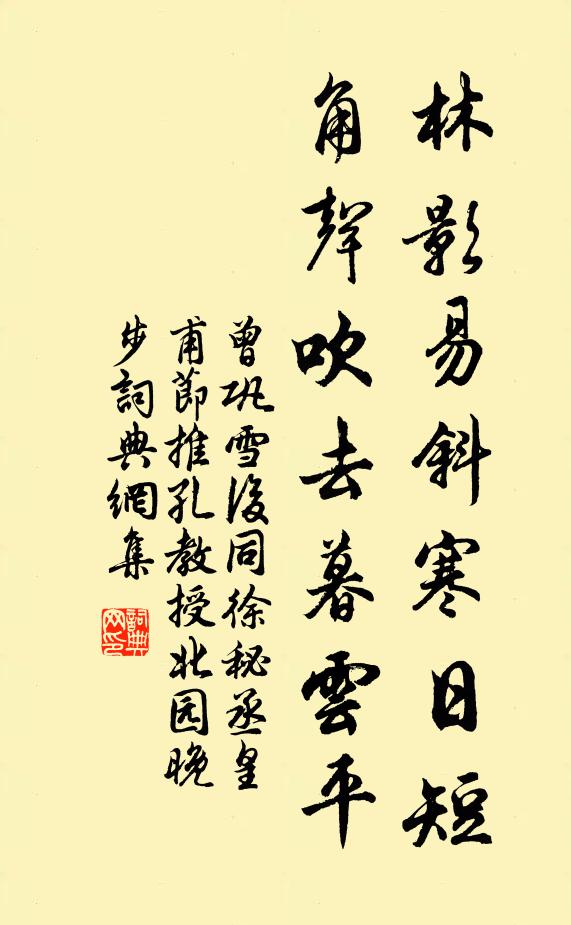 林影易斜寒日短
角聲吹去暮雲平
曾巩雪後同徐秘丞皇
甫節推孔教授北园晚
步詞典網集
詞典
网印